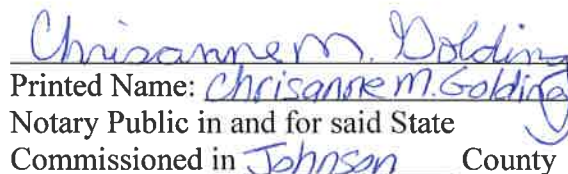 Chrisanne M. Golding
Printed Name: Chrisanne M. Golding
Notary Public in and for said State
Commissioned in Johnson County